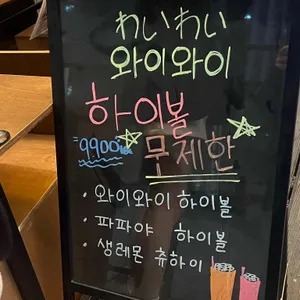 わいわい
와이와이
하이볼
9900
무제한
• 와이와이 하이볼
• 파파야 하이볼
• 생레몬 츄하이